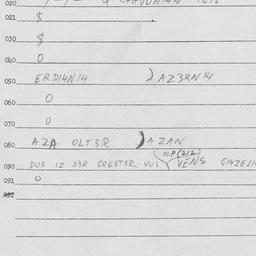 020
021 $
030 $
040 0
050 ERDI4N14 ) AZ3RN14
060 0
070 0
080 AZA OLT3R ) AZAN
KOP (212)
090 DUS IZ D3R GREST3R VUS VENS
091 0
092